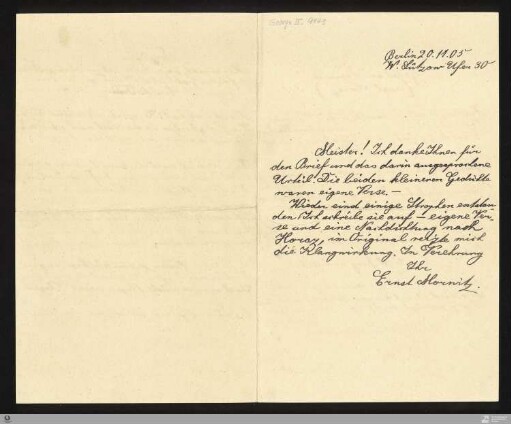 George III, 4943
Berlin 20.11.05
W. Lützow Ufer 30
Meister! Ich danke Ihnen für
den Brief und das darin ausgesprochene
Urteil. Die beiden kleineren Gedichte
waren eigene Verse. —
Wieder sind einige Strophen entstan-
den. Ich schreibe sie auf — eigene Ver-
se und eine Nachdichtung nach
Horaz, im Original reizte mich
die Klangwirkung. In Verehrung
Ihr
Ernst Morwitz.